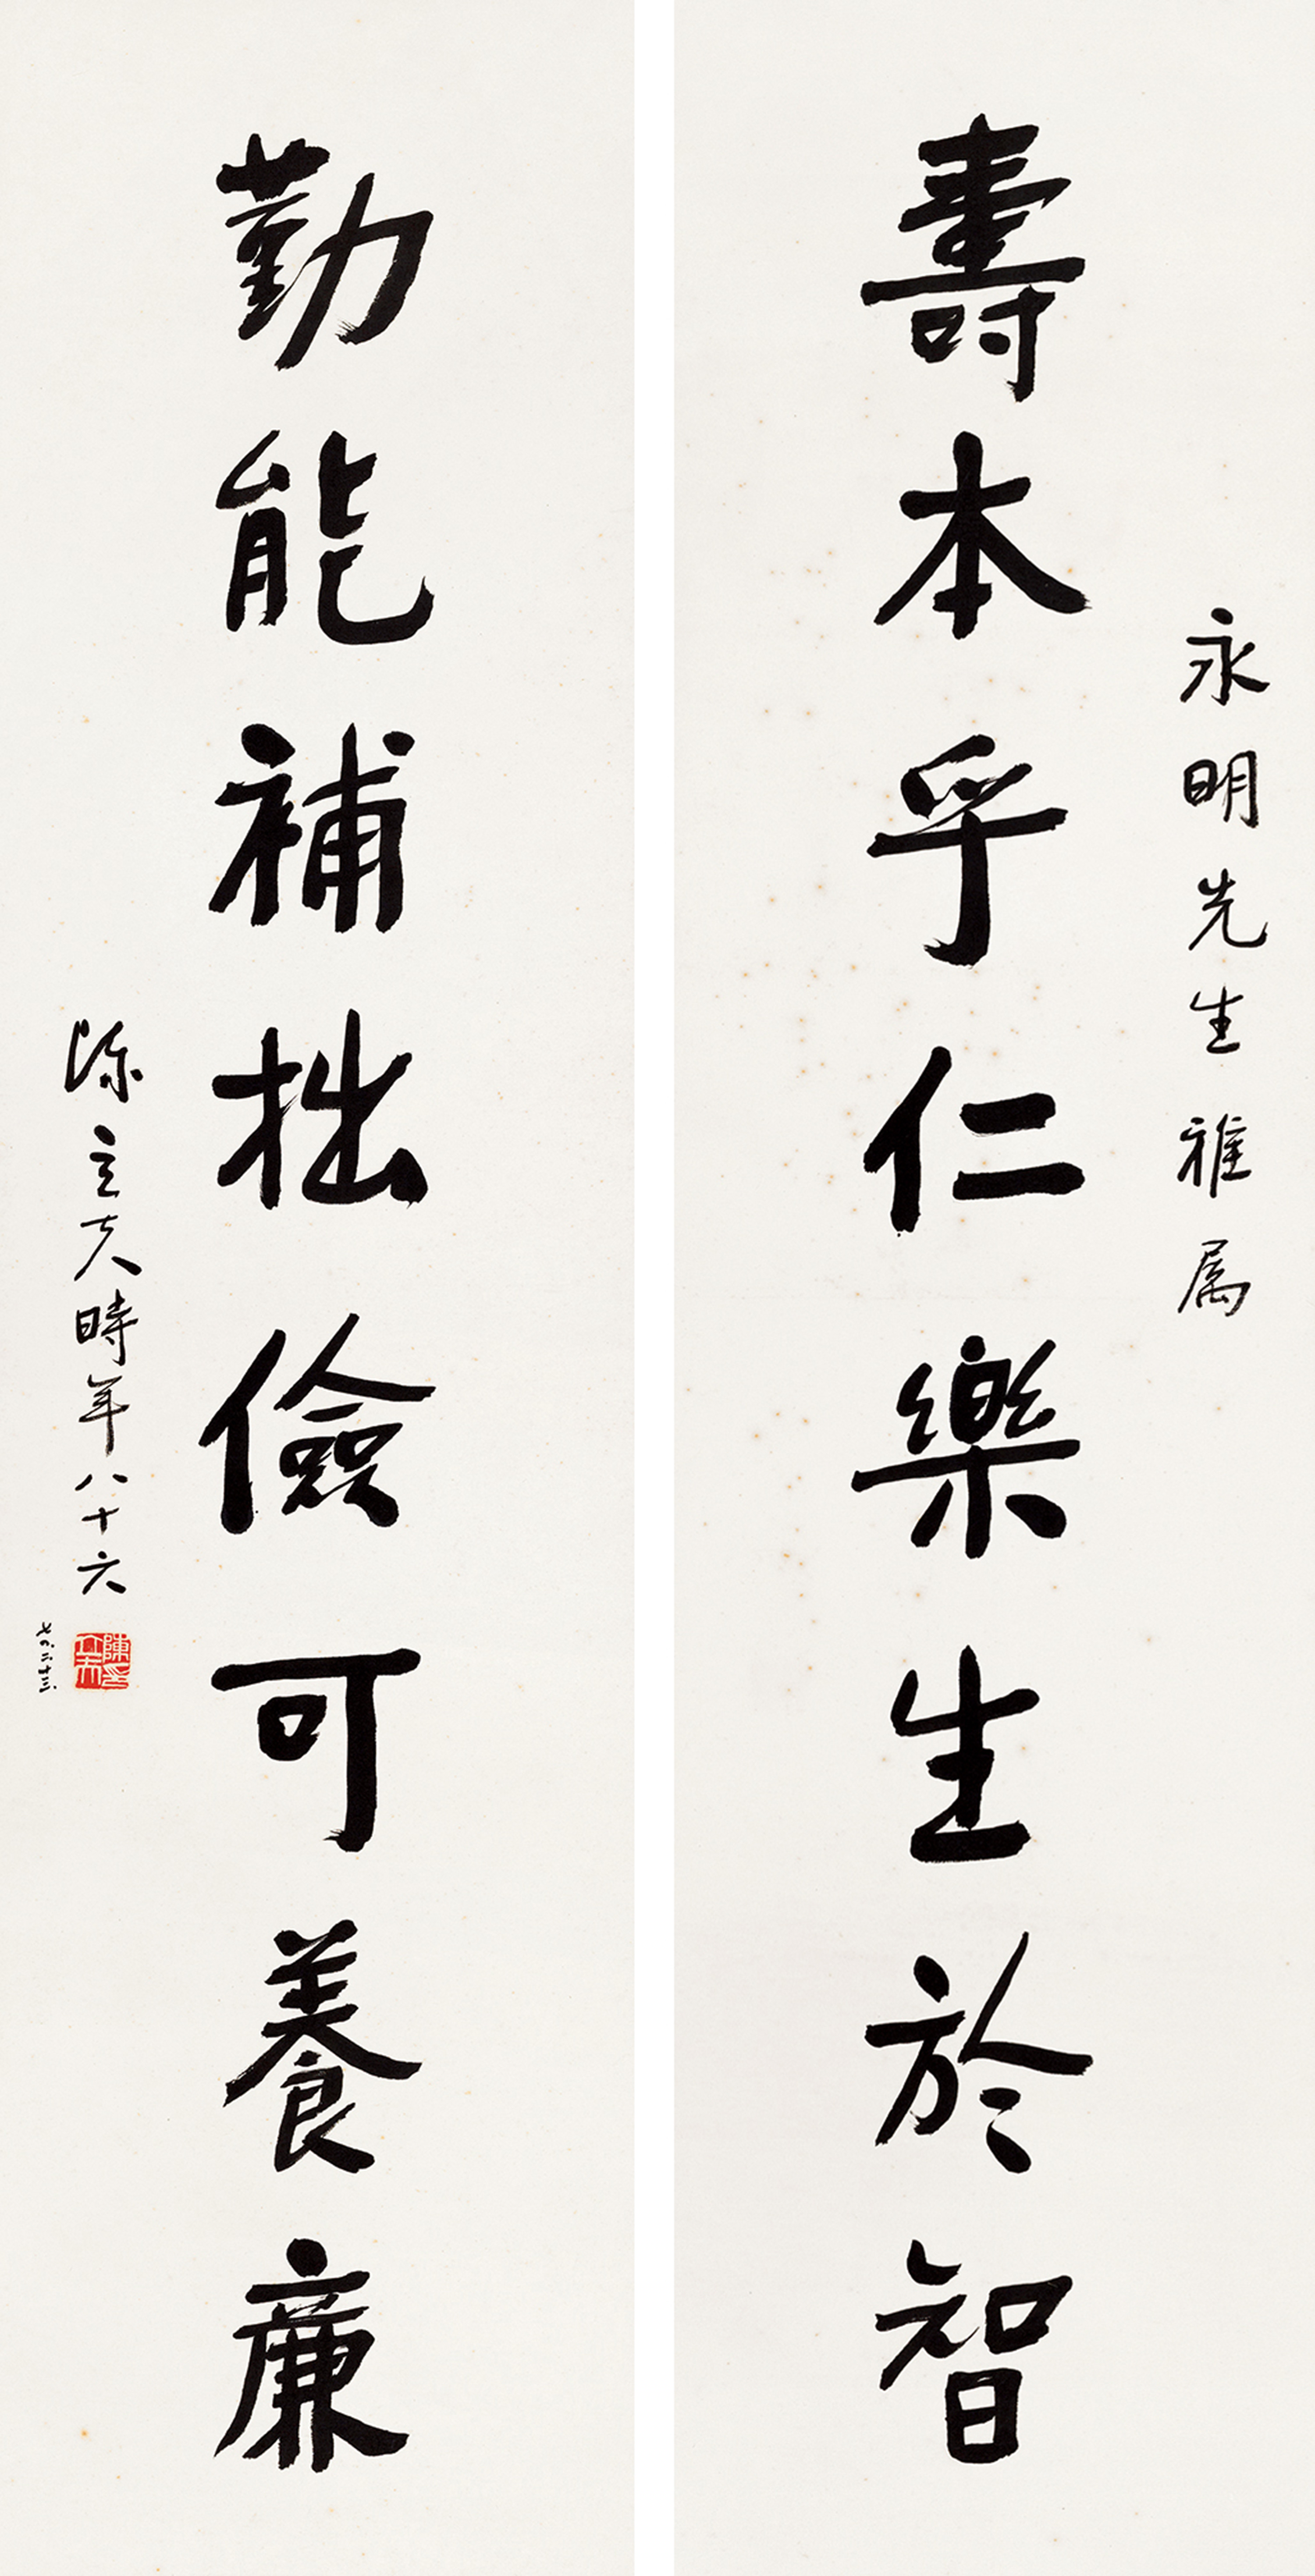 永明先生雅属
壽本乎仁樂生於智
勤能補拙儉可養廉
陳立夫時年八十六
七四.二.十三.
陳立夫印